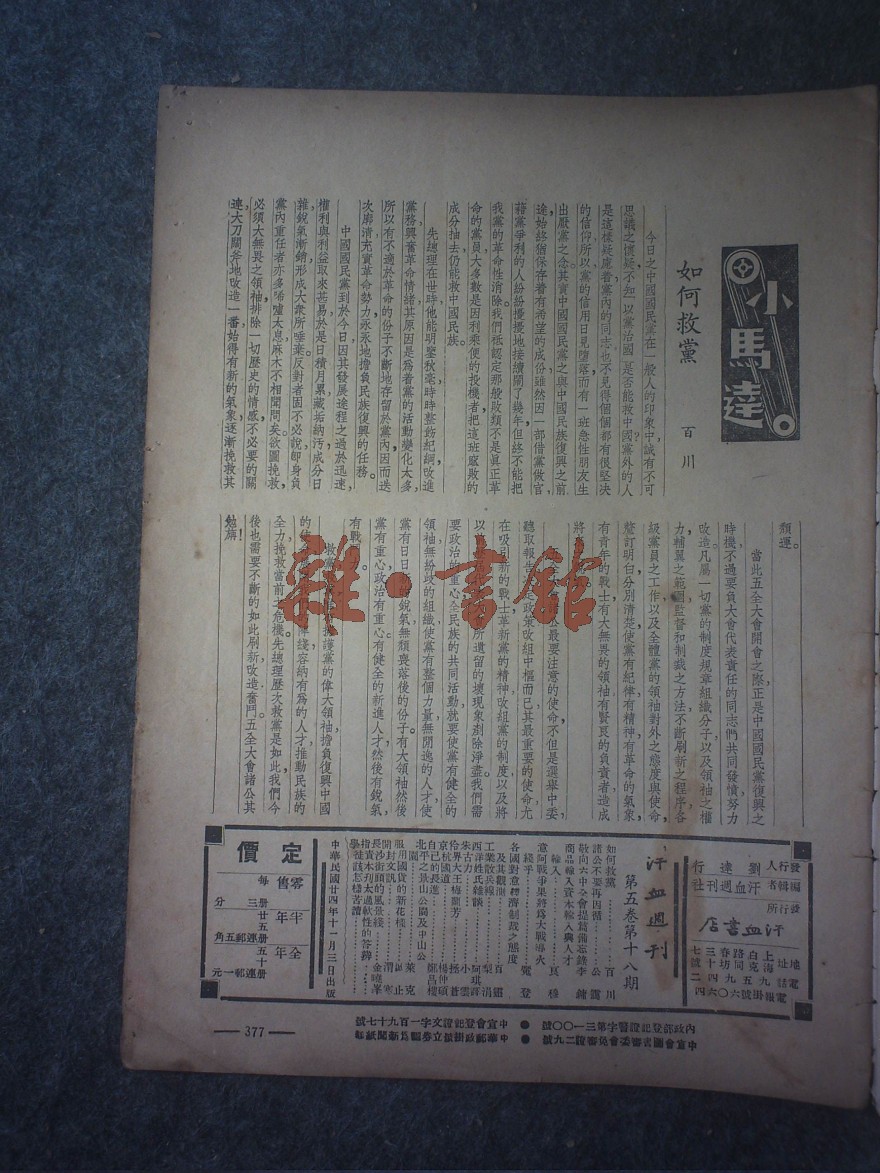 小馬達
如何救黨 百川
今日之中國國民黨在一般人的印象中誠有不可
思議之懷疑不知「以黨治國」是否能救中國黨外的人
是這樣疑慮着黨內的同志也不見得個個都有很堅決
的信仰所以黨的信用日見墮落而有一班急性朋友生
出厭黨之念其實中國國民黨之與中國民族復興之前
途始終猶保存着有希望的成份雖然因一部借黨做官
藉黨爭利的人紛紛擾擾地接續鬧了幾年但終不能把
我黨的革命性消除我們祗認定那般敗類不是眞正革
命的黨員大多數是因利乘便的投機者把這班腐敗的
成分抽去仍能救中國民族。
先總理在世時他能明鑒秋毫時時整飭紀綱改進
黨務興奮革命情緒其原因是為着黨的活動變化太多,
所以有不適於革命的份子不斷地存留於黨內因而迭
次廓清充實革命勢力永永地擔負民族復興的任務。
中國國民黨到於今日因其發展途程之過於迅速,
權利與利益取來甚易於是日積月累藏垢納污成分日
雜銳氣漸銷形成大衆所唾棄反對者固不必說卽身負
黨內重任者亦多唏噓太息麻木不相聞問矣欲圖挽救,
必須大無畏之領袖排除一切歷史的情感不必要的關
連大刀闊斧地改造一番始得有新的氣象逐漸挽救其
頹運。
當此五全大會開會之際正是中國國民黨復興之
時機不過要負大會代表責任的同志們共同發憤努力
改造凡屬一切黨的制度規章組織分子以及領袖之權
力輔翼之範圍監督和制裁之方法不斷刷新之程序各
級黨員之工作以及全體黨的領袖對外之態度與使命,
釐訂明白分別清楚使黨有紀律有精神有革命的氣象,
有青年的戰士有大無畏的領袖有賢良的負責者造成
將
最要注意的使命不但是選舉中委
聽取報告 政策改組中樞而已其最重要的使命尤
在吸引新的戰士革新黨的精神改組黨的制度以及將
以 所遺留的壞現象剷除淨盡我們需
要政治的重心全民族的共同活動就要使黨有健全的
領袖無紛歧的組織使黨有整個力量無閒逸的人才使
黨有日日 銳氣無頹喪落後的份子有大領袖然後
黨有重心政治有重心有健全的新進人才然後有銳氣,
有戰
救黨 護黨的偉大領袖擔負復興中國
的使 容納有爲的人才推動民族的
全力挽救當前之危機先總理歷次救黨是如此我們今
後也需要不斷的如此刷新改造奮鬥五全大會諸公其
勉旃!
雜·書館
發行人 劉達行
編輯者 汗血週刊社
發行所
汗血書店
地址 上海白克路同春坊三十四號
電話 九五九七二
電報掛號 〇六〇四
汗血週刊
第五卷第十八期
如何救黨 百川
諸公不要再因循 公靄
敬向六中全會提篇備忘錄 李鍊
商品輸入資本輸入與人才輸入
意阿戰爭果將爲大戰導火綫乎
各國對意經濟制裁之態度及其觀測 百霜
工業散兵線
西洋姓氏雜談 阿琪
朱古力 小雲
伶界大王梅蘭芳 拯蒼
京杭國道 楊仲碩
自己的長進 鄭呂樓
北平之景山公園及中山公園 萊克
服用國貨的新花樣 止
開封文訊 渭寒
長沙街頭的風景綫 金曉峯
指資本利太過軟性的答辯
學徒該怎樣苦讀
中華民國廿四年十一月三日出版
定價
零售 每冊三分
半年 廿五冊連郵五角
全年 五十冊連郵一元
內政部登記證警字第三一〇〇號 ● 中宣會登記證文字一百九十七號
中宣會圖書審委會免審證二九號 ● 中華郵政掛號立券認爲新聞紙類
— 377 —